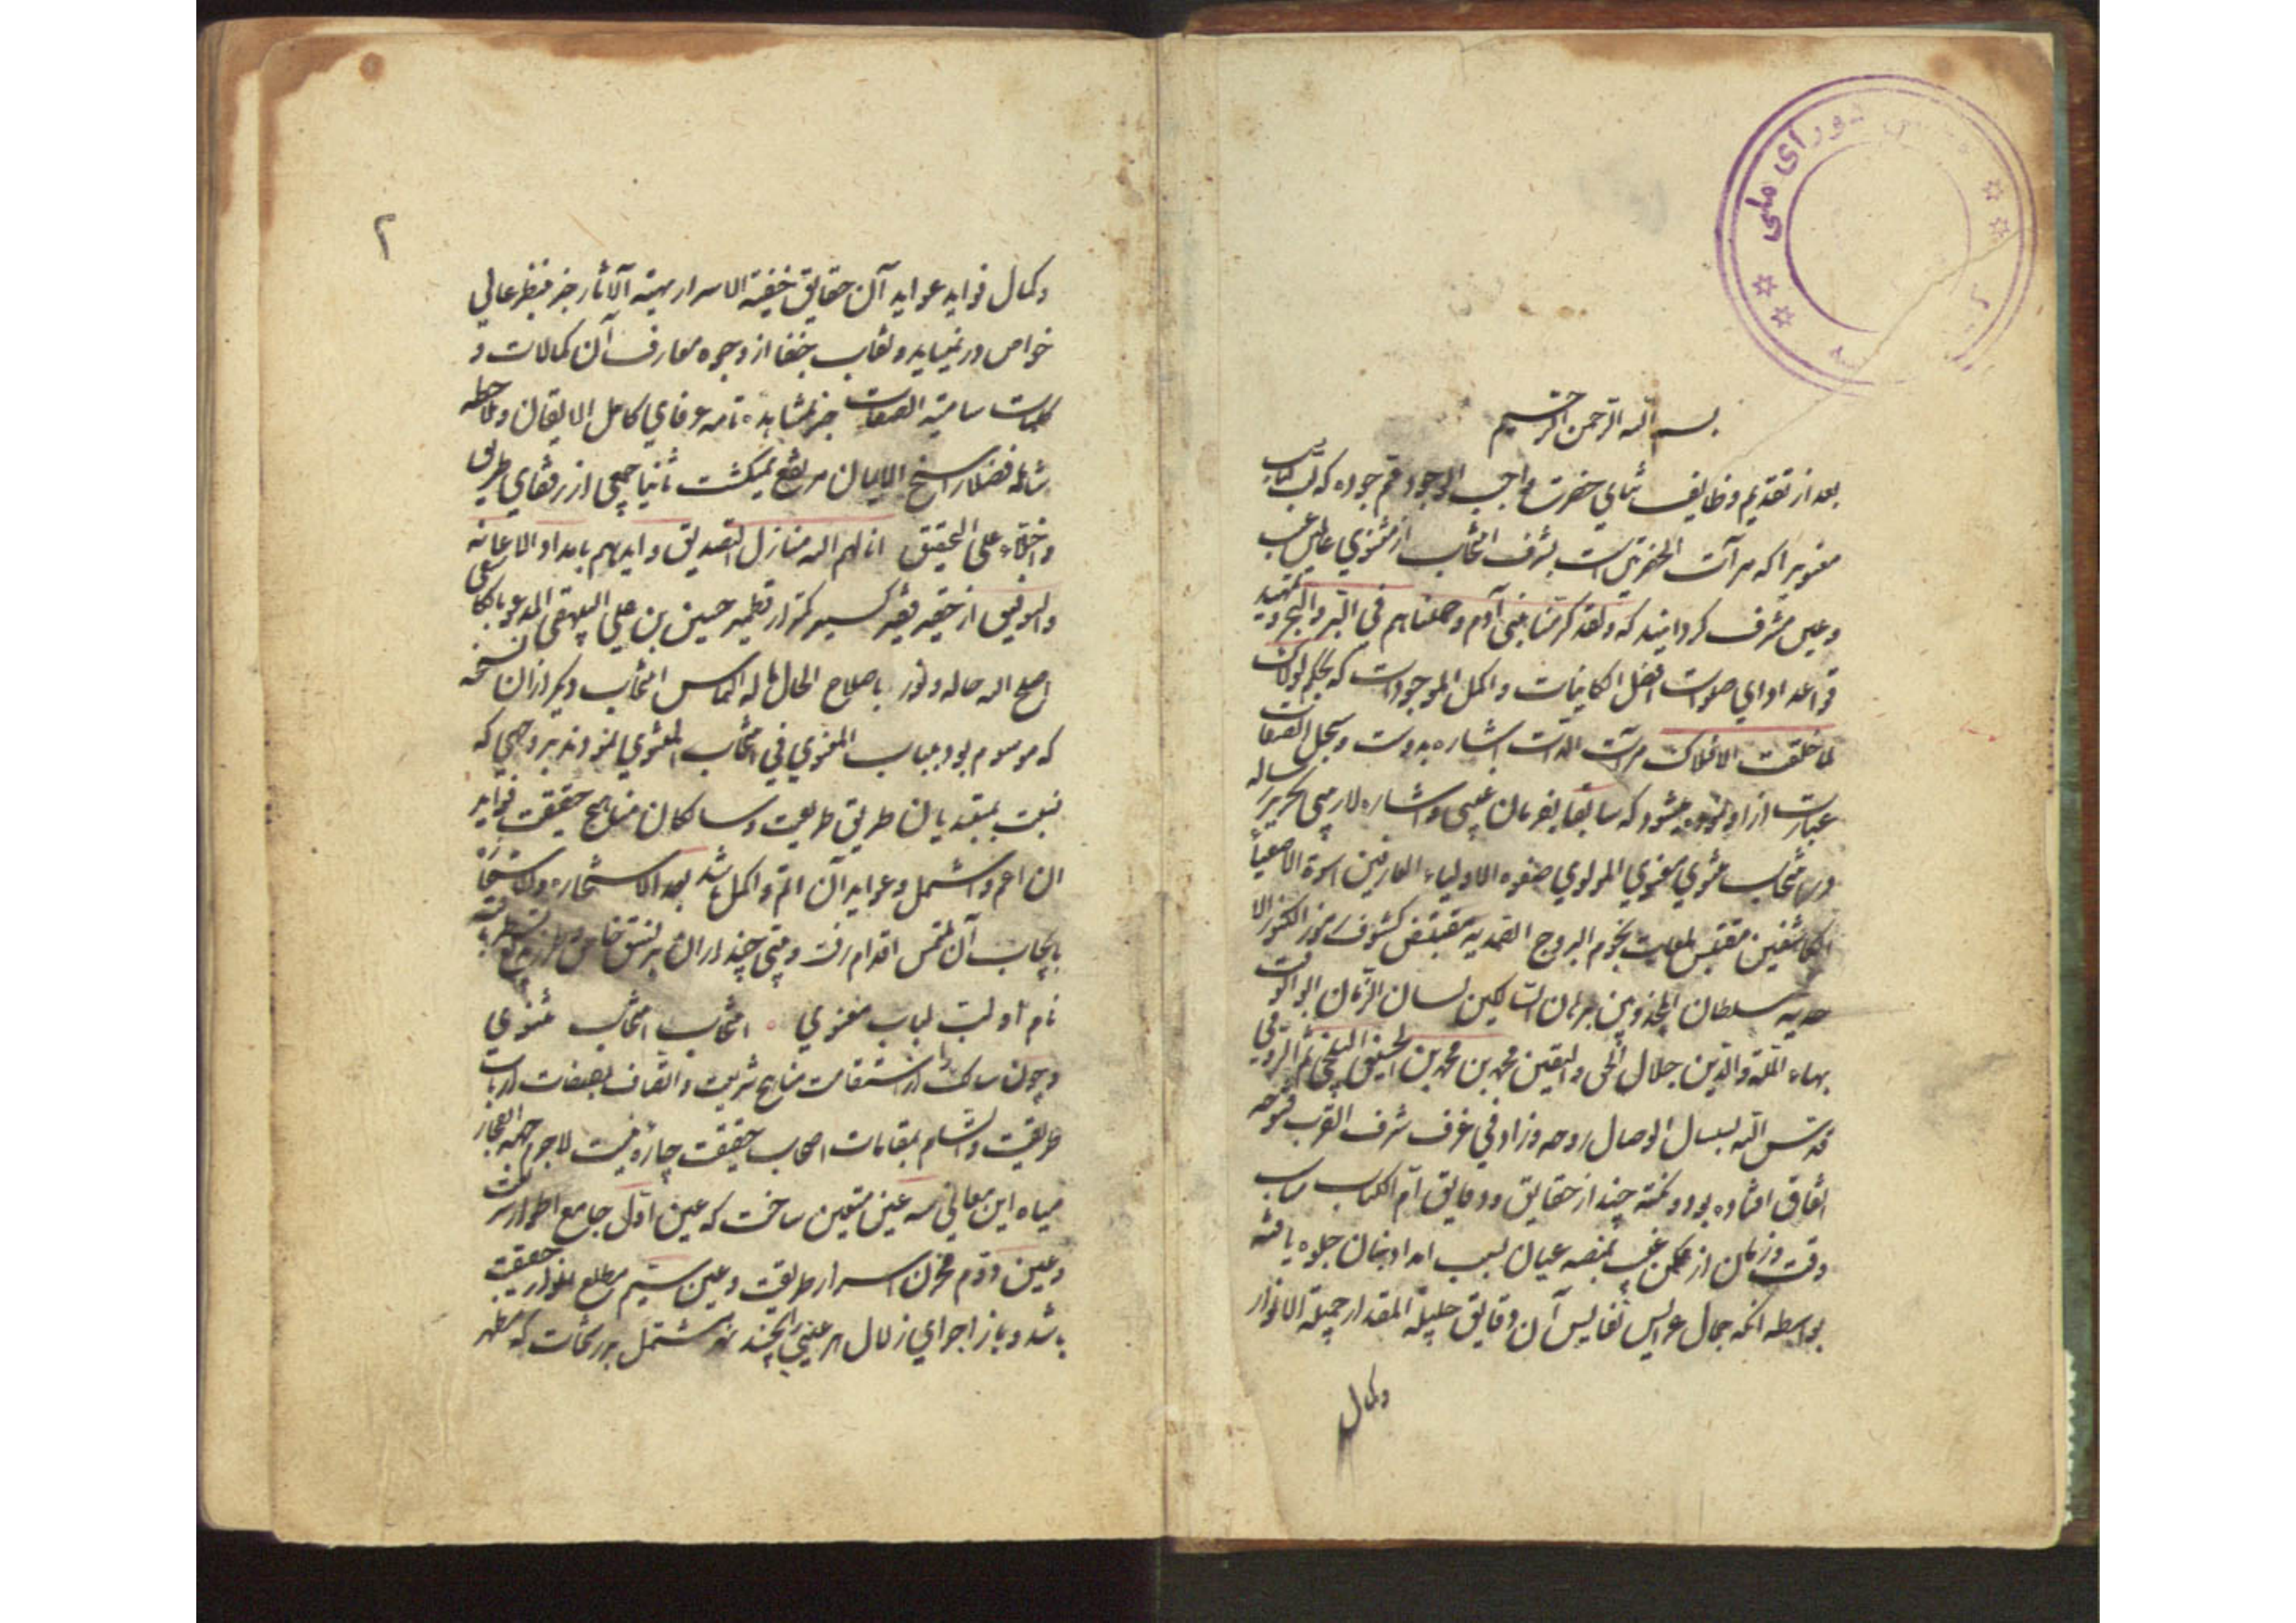 شورای ملی
بسم الله الرحمن الرحیم
بعد از تقدیم وظایف ثنای حضرت واجب الوجود عم جوده که لب کتاب
معنویرا که مرآت الحضرتین است بشرف انتخاب از مثنوی عالمین غیب
و عین مشرف گردانیند که و لقد کرمنا بنی آدم و حملناهم فی البر و البحر و تمهید
قواعد ادای صلوات افضل الکاینات و اکمل الموجودات که بحکم لولاک
لما خلقت الافلاک مرآت الذات اشاره بدوست و سجل الصفات
عبارت از او نموده میشود که سابقا بفرمان غیبی و اشاره لاریبی تحریر رساله
در انتخاب مثنوی معنوی المولوی صفوه الاولیاء العارفین اسوة الاصفیاء
المکاشفین مقتبس لمعات نجوم البروج الصمدیه مقتنص کشوف رموز الکنوز الا
حدیه سلطان المجذوبین برهان السالکین لسان الزمان ابو الوقت
بهاء الملة والدین جلال الحق والیقین محمد بن محمد بن الحسین البلخی ثم الرومی
قدس الله بسبسال الوصال روحه و زاد فی غرف شرف القرب فتوحه
اتفاق افتاده بود و نکته چند از حقایق و دقایق ام الکتاب مناسب
وقت و زمان از ممکن غیب بمنصه عیان بسبب امداد بنان جلوه یافته
بواسطه انکه جمال عرایس نفایس آن دقایق جلیلة المقدار جمیلة الانوار
وکمال
۲
وکمال فواید عواید آن حقایق خفیة الاسرار بهیة الآثار جز بنظر عالی
خواص در نمیاید و نقاب خفا از وجوه معارف آن کمالات و
کلمات سامیة الصفات جز بمشاهده تامه عرفای کامل الایقان و ملاحظه
شامله فضلا راسخ الایمان مرتفع نمیگشت ثانیا جمعی از رفقای طریق
و اخلاء علی التحقیق انالهم الله منازل التصدیق و ایدهم بامداد الاعانه
والتوفیق از حقیر فقیر کسیر کمتر از قطمیر حسین بن علی البیهقی المدعو بالکاشفی
اصلح الله حاله و نور باصلاح الحال باله التماس انتخاب دیگر از ان نسخه
که موسوم بود بلباب المعنوی فی انتخاب المثنوی نمودند بر وجهی که
نسبت بمبتدیان طریق طریقت و سالکان مناهج حقیقت فواید
ان اعم و اشمل و عواید آن اتم و اکمل باشد بعد الاستخاره و الاستجازة
بایجاب آن ملتمس اقدام رفت و بیتی چند از ان بر نسق خاص
نام او لب لباب معنوی انتخاب انتخاب مثنوی
و چون سالک را از استقامت مناهج شریعت و اتصاف بصفات ارباب
طریقت و تسلم بمقامات اصحاب حقیقت چاره نیست لاجرم جهة انفجار
میاه این معانی سه عین متعین ساخت که عین اول جامع اطوار شریعت
و عین دوم مخزن اسرار طریقت و عین سیم مطلع انوار حقیقت
باشد و باز اجرای زلال هر عینی را بچند نهر مشتمل بر رشحات که مظهر